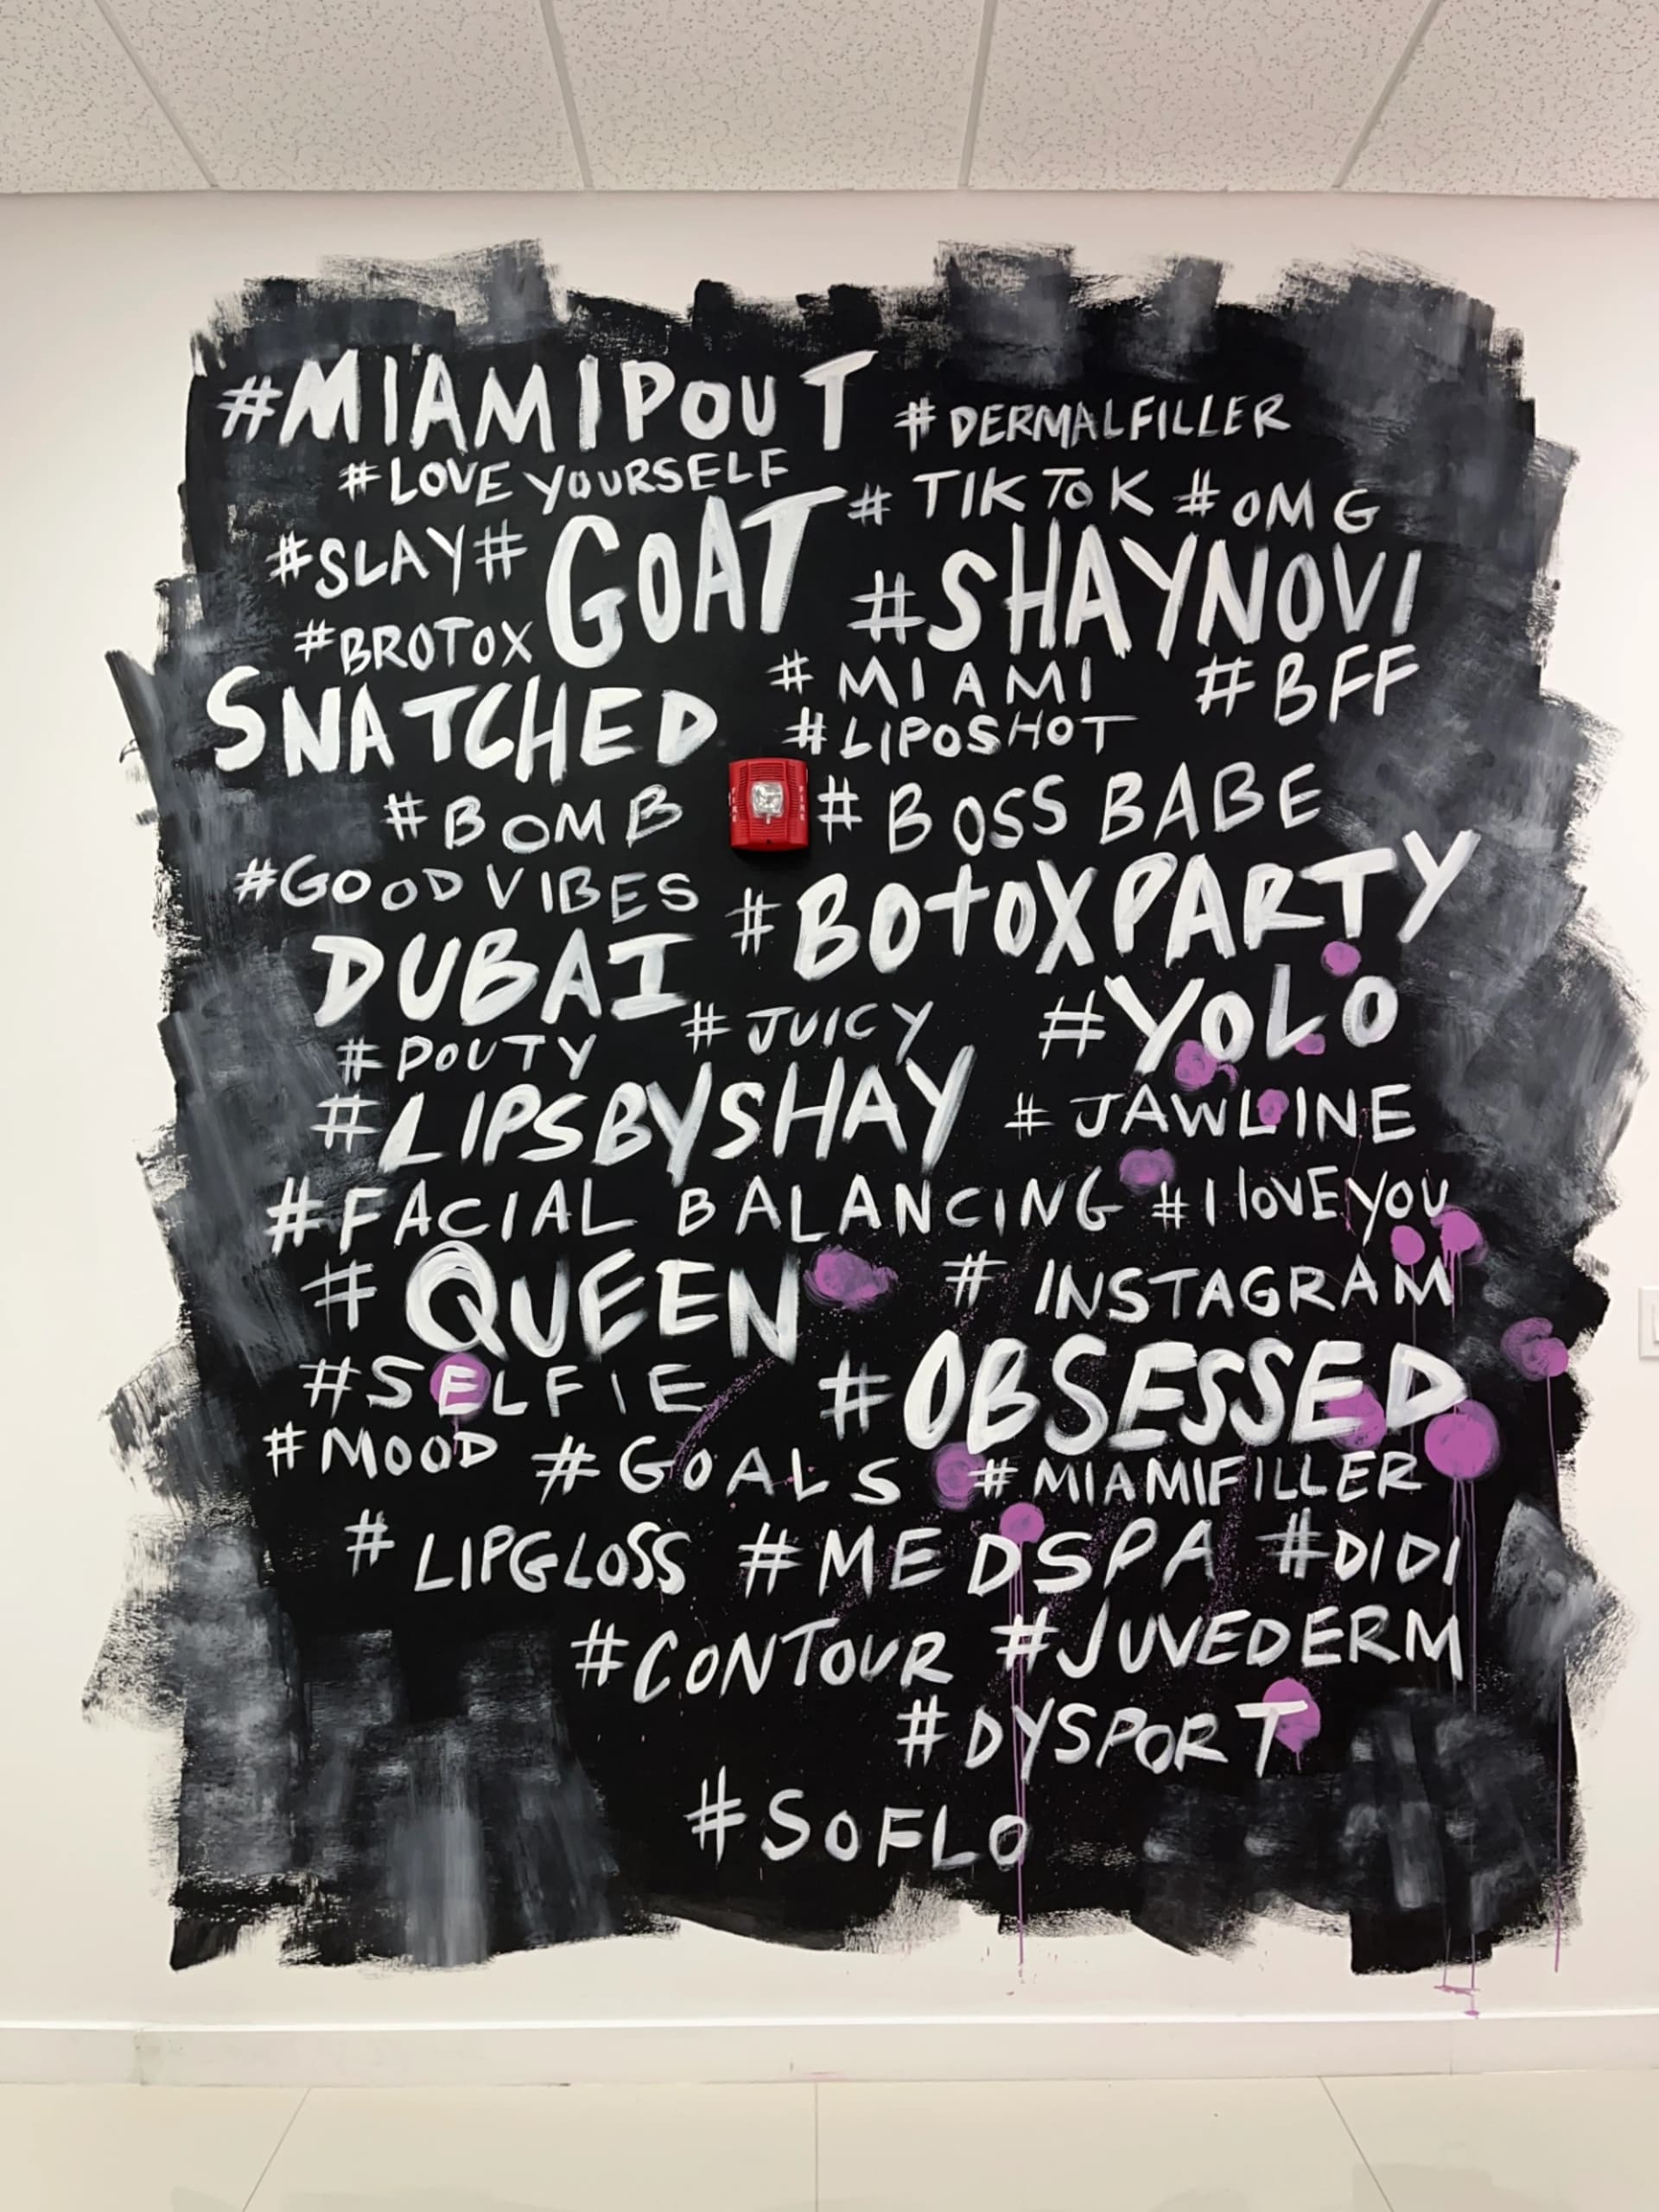 #MIAMIPOUT #DERMALFILLER
#LOVE YOURSELF # TIKTOK #OMG
#SLAY # GOAT #SHAYNOVI
#BROTOX # MIAMI #BFF
SNATCHED #LIPOSHOT
#BOMB FIRE FIRE # BOSS BABE
#GOOD VIBES #BOTOXPARTY
DUBAI #JUICY #YOLO
#POUTY
#LIPSBYSHAY # JAWLINE
#FACIAL BALANCING #I LOVE YOU
# QUEEN # INSTAGRAM
#SELFIE #OBSESSED
#MOOD #GOALS #MIAMIFILLER
# LIPGLOSS #MEDSPA #DIDI
#CONTOUR #JUVEDERM
#DYSPORT
#SOFLO